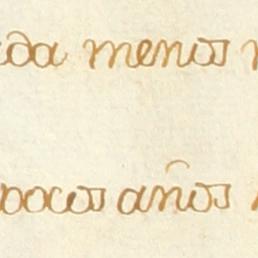 ida menos
pocos años